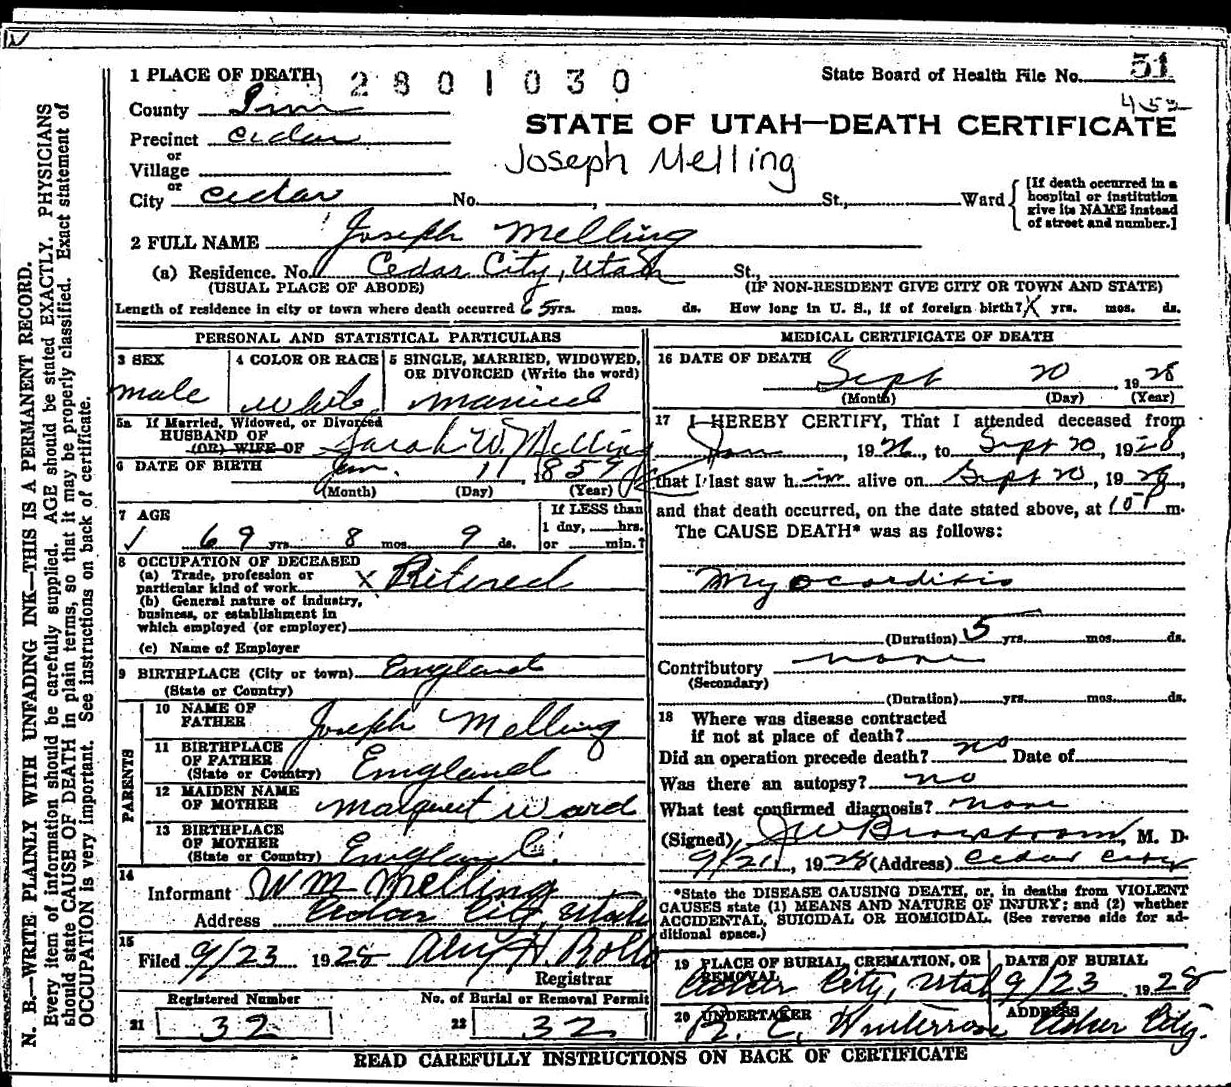 1 PLACE OF DEATH 2 8 0 1 0 3 0
State Board of Health File No. 51
County Iron
452
Precinct Cedar
STATE OF UTAH—DEATH CERTIFICATE
or
Village
Joseph Melling
or
City Cedar No. , St., Ward
[If death occurred in a
hospital or institution
give its NAME instead
of street and number.]
2 FULL NAME Joseph Melling
(a) Residence. No. Cedar City, Utah St.,
(USUAL PLACE OF ABODE) (IF NON-RESIDENT GIVE CITY OR TOWN AND STATE)
Length of residence in city or town where death occurred 65 yrs. mos. ds. How long in U. S., if of foreign birth? X yrs. mos. ds.
PERSONAL AND STATISTICAL PARTICULARS
3 SEX
male
4 COLOR OR RACE
White
5 SINGLE, MARRIED, WIDOWED,
OR DIVORCED (Write the word)
married
5a If Married, Widowed, or Divorced
HUSBAND OF
(OR) WIFE OF Sarah W. Melling
6 DATE OF BIRTH Jan. 1 1859
(Month) (Day) (Year)
7 AGE
69 yrs. 8 mos. 9 ds.
If LESS than
1 day, hrs.
or min.?
8 OCCUPATION OF DECEASED
(a) Trade, profession or
particular kind of work X Retired
(b) General nature of industry,
business, or establishment in
which employed (or employer)
(c) Name of Employer
9 BIRTHPLACE (City or town) England
(State or Country)
PARENTS
10 NAME OF
FATHER Joseph Melling
11 BIRTHPLACE
OF FATHER
(State or Country) England
12 MAIDEN NAME
OF MOTHER Margaret Ward
13 BIRTHPLACE
OF MOTHER
(State or Country) England
14
Informant Wm Melling
Address Cedar City, Utah
15
Filed 9/23 1928
Registrar
Registered Number
21 32
No. of Burial or Removal Permit
22 32
MEDICAL CERTIFICATE OF DEATH
16 DATE OF DEATH
Sept 20, 1928
(Month) (Day) (Year)
17 I HEREBY CERTIFY, That I attended deceased from
Jan , 1926, to Sept 20, 1928
that I last saw him alive on Sept 20, 1928,
and that death occurred, on the date stated above, at m.
The CAUSE DEATH* was as follows:
Myocarditis
(Duration) 5 yrs. mos. ds.
Contributory none
(Secondary)
(Duration) yrs. mos. ds.
18 Where was disease contracted
if not at place of death?
Did an operation precede death? no Date of
Was there an autopsy? no
What test confirmed diagnosis? none
(Signed) J W Bergstrom, M. D.
9/21, 1928 (Address) Cedar City
*State the DISEASE CAUSING DEATH, or, in deaths from VIOLENT
CAUSES state (1) MEANS AND NATURE OF INJURY; and (2) whether
ACCIDENTAL, SUICIDAL OR HOMICIDAL. (See reverse side for ad-
ditional space.)
19 PLACE OF BURIAL, CREMATION, OR
REMOVAL
Cedar City, Utah
DATE OF BURIAL
9/23 1928
20 UNDERTAKER
R. C. Winterrose
ADDRESS
Cedar City.
READ CAREFULLY INSTRUCTIONS ON BACK OF CERTIFICATE
N. B.—WRITE PLAINLY WITH UNFADING INK—THIS IS A PERMANENT RECORD.
Every item of information should be carefully supplied. AGE should be stated EXACTLY. PHYSICIANS
should state CAUSE OF DEATH in plain terms, so that it may be properly classified. Exact statement of
OCCUPATION is very important. See instructions on back of certificate.